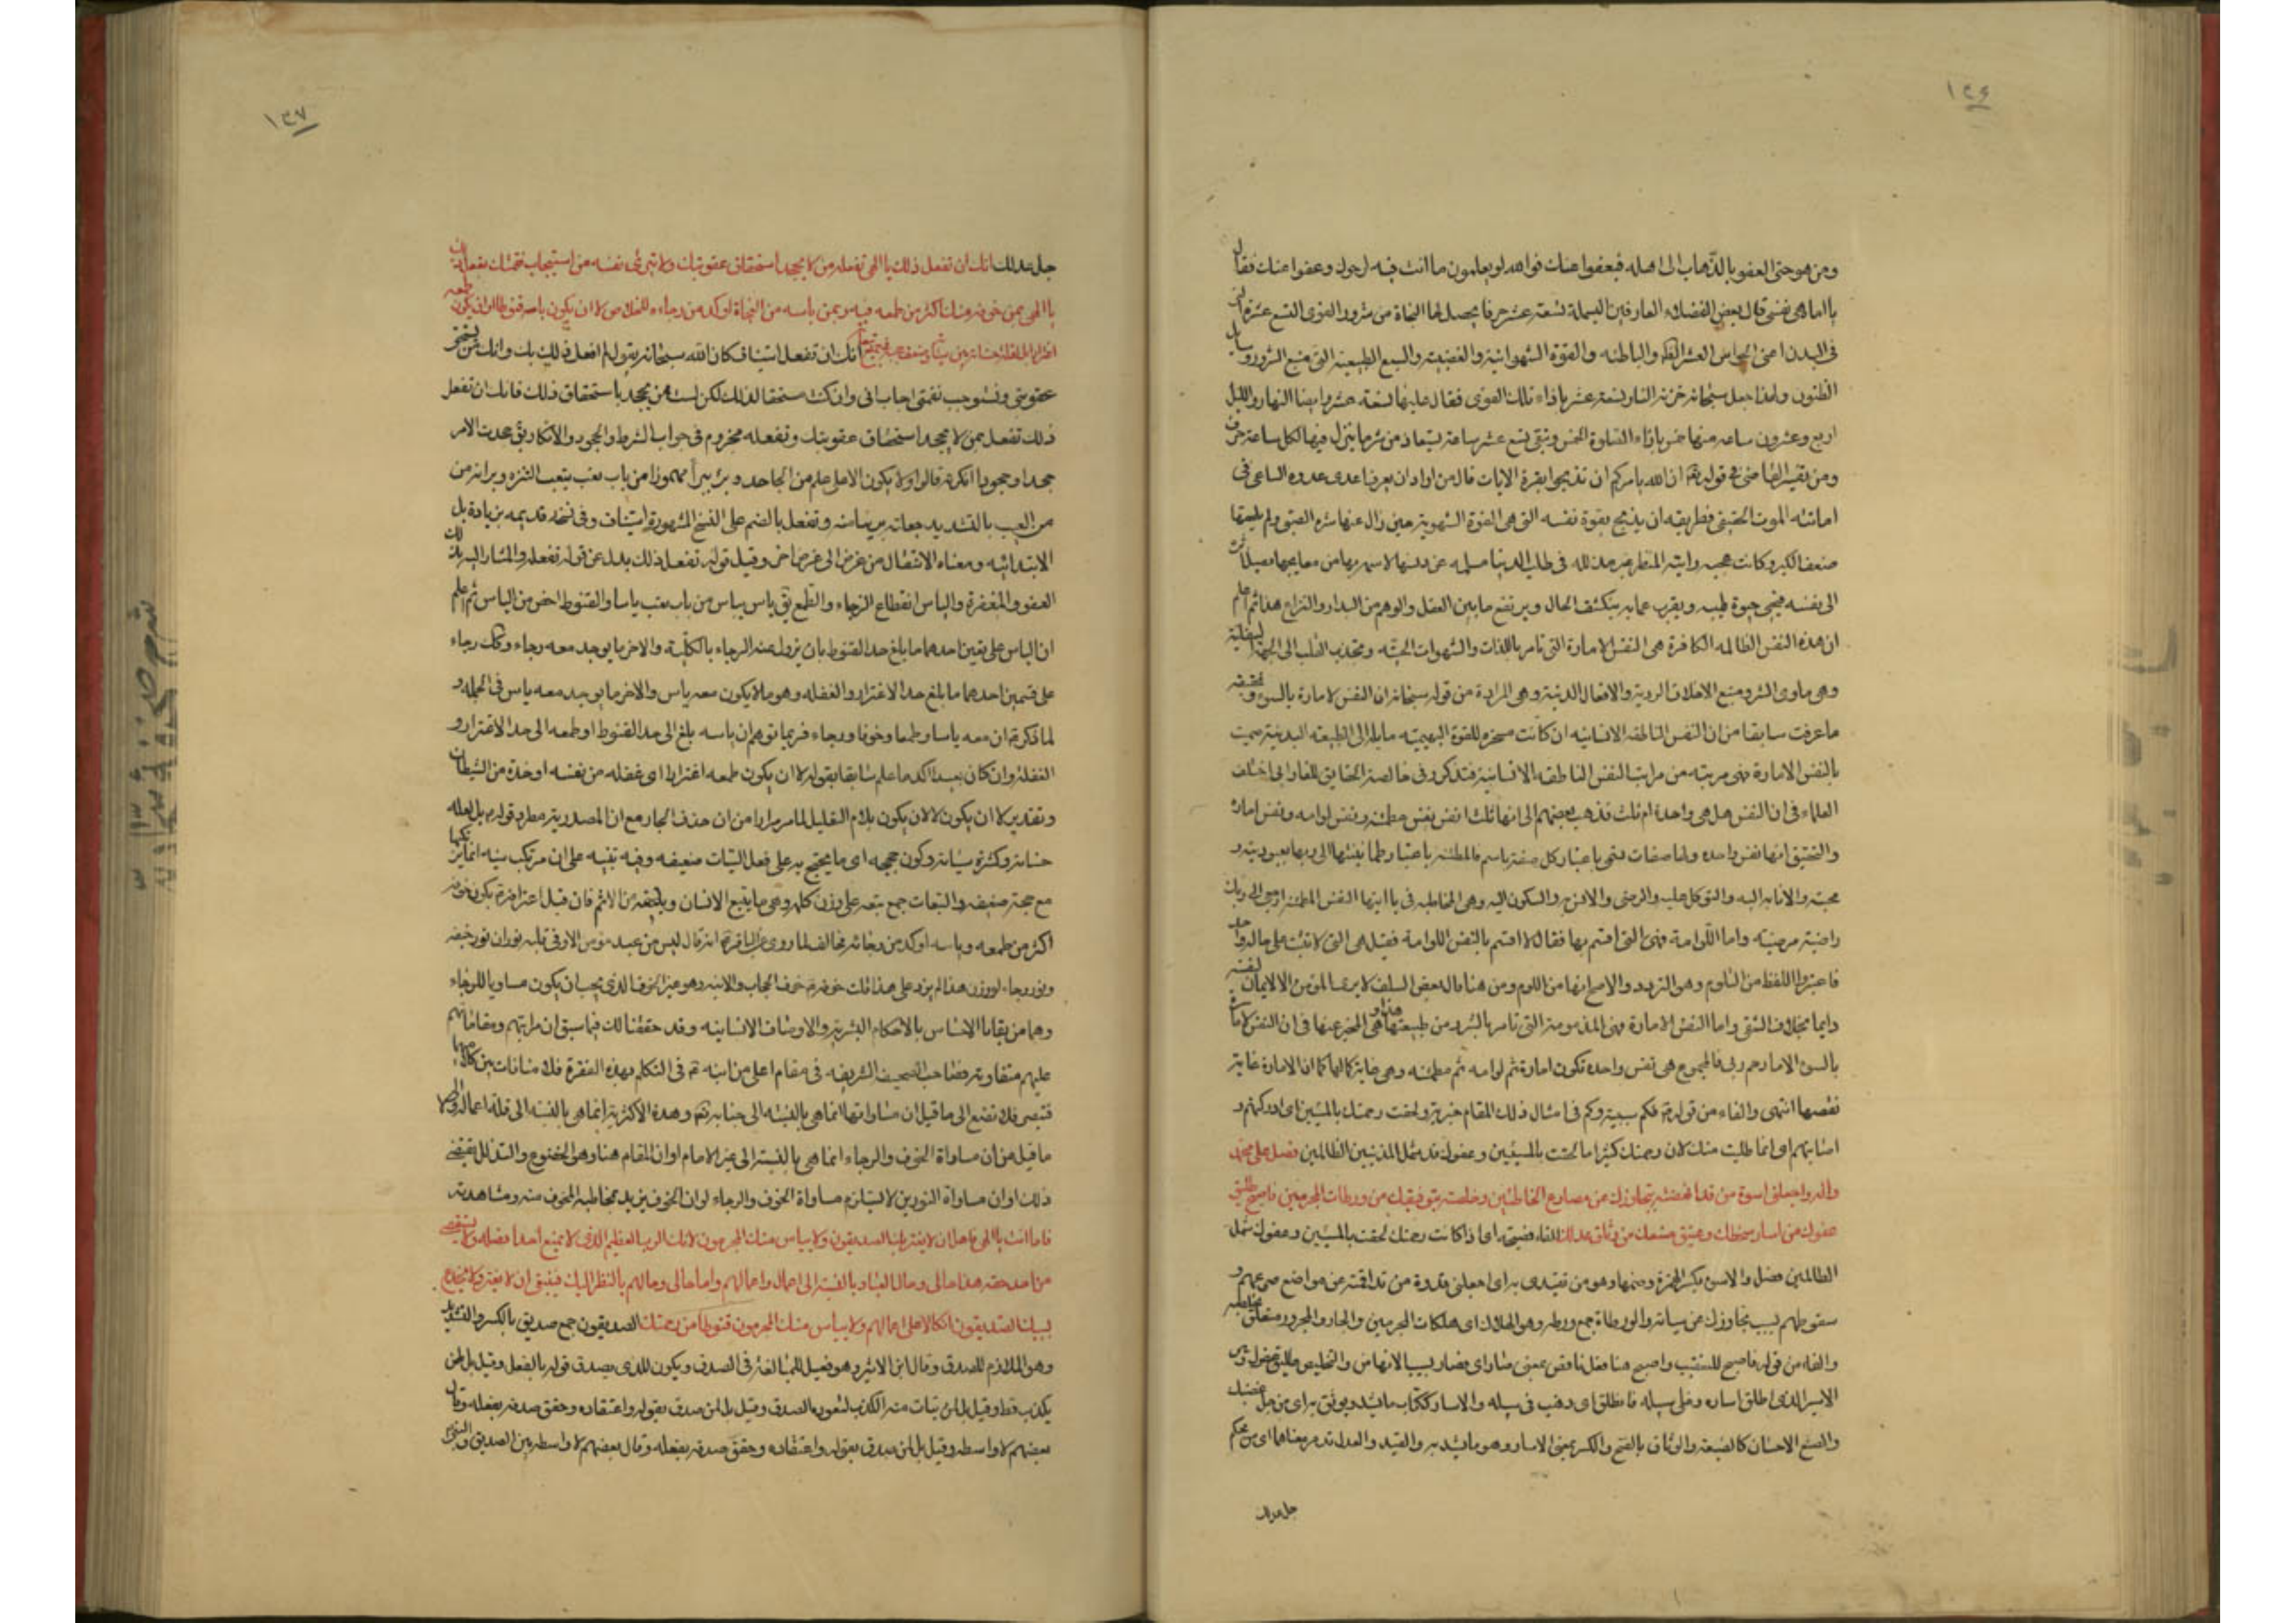 ١٣٦
ومن هو حتى العفو بالذهاب الى اهله فيعفوا عنك فوالله لو يعلمون ما انت فيه لرحوك وعفوا عنك فقال
يا اماهى نفسى قال بعض الفضلاء العارفين البسملة تسعة عشر حرفا يحصل لها النجاة من شرور القوى التسع عشرة التى
فى البدن اعنى الحواس العشر الظاهرة والباطنه والقوة الشهوانية والغضبية والسبع الطبيعية التى منبع الشرور وسايل
الظنون ولهذا جعل سبحانه خزنة النار تسعة عشر بازاء تلك القوى فقال عليها تسعة عشر وايضا النهار والليل
اربع وعشرون ساعه منها خمس بازاء الصلوة الخمس وتبقى تسع عشر ساعة يستعاذ من شر ما ينزل فيها لكل ساعة حرف
ومن تفسير القاضى فى قوله تعالى ان الله يامركم ان تذبحوا بقرة الايات قال من اراد ان يعرف اعدى عدوه الساعى فى
اماتته الموت الحقيقى فطريقه ان يذبح بقرة نفسه التى هى القوة الشهوية حين زال عنها شره الصبى ولم يلحقها
ضعف الكبر وكانت معجبه رايقة المنظر غير مذلله فى طلب الدنيا مسلمه عن دنسها لاسمه بها من مقابحها بحيث
الى نفسه فيحيى حيوة طيبه ويقرب عمابه ينكشف الحال ويرتفع ما بين العقل والوهم من التدار والنزاع هذا ثم اعلم
ان هذه النفس الظالمه الكافرة هى النفس الامارة التى تامر باللذات والشهوات الحسيه وتجذب القلب الى الجهة السفلية
وهى ماوى الشر ومنبع الاخلاق الردية والافعال الدنية وهى المرادة من قوله سبحانه ان النفس لامارة بالسوء
ما عرفت سابقا من ان النفس الناطقه الانسانيه ان كانت مسخره للقوة البهيميه مايله الى الطبيعه البدنية سميت
بالنفس الامارة فهى مرتبه من مراتب النفس الناطقه الانسانية فتذكر وفى خالصة الحقايق للفارابى اختلف
العلماء فى ان النفس هل هى واحدة ام ثلث فذهب بعضهم الى انها ثلث انفس نفس مطمئنه ونفس لوامه ونفس اماره
والتحقيق انها نفس واحده ولها صفات فتسمى باعتبار كل صفة باسم فالمطمئنه باعتبار طمانينتها الى ربها بعبوديته و
محبته والانابه اليه والتوكل عليه والرضى والانس به والسكون اليه وهى المخاطبه فى يا ايتها النفس المطمئنه ارجعى الى ربك
راضية مرضيه واما اللوامة فهى التى اقسم بها فقال لا اقسم بالنفس اللوامة فقيل هى التى لا تثبت على حال واحد
فاعتبروا اللفظ من التلوم وهو التردد والاصح انها من اللوم ومن هنا قال بعض السلف لا يرى المؤمن الا لايما نفسه
دايما بخلاف الشقى واما النفس الامارة فهى المذمومة التى تامر بالشرور من طبيعتها وهى المخبر عنها فى ان النفس لامارة
بالسوء الا ما رحم ربى فالمجموع هى نفس واحده تكون امارة ثم لوامه ثم مطمئنه وهى غاية كمالها كما ان الامارة غاية
نقصها انتهى والفاء من قوله فكم سببية وكم فى امثال ذلك المقام خبرية ولحقت رحمتك بالمسيئين اى ادركتهم و
اصابتهم اى انما طلبت منك لان رحمتك كثيرا ما لحقت بالمسيئين وعفوك قد شمل المذنبين الظالمين فصل على محمد
واله واجعلنى اسوة من قد انهضته بتجاوزك عن مصارع الخاطئين وخلصته بتوفيقك من ورطات المجرمين فاصبح طليق
عفوك من اسار سخطك وعتيق صنعك من وثاق عدلك الفاء فصيحة اى اذا كانت رحمتك لحقت بالمسيئين وعفوك شمل
الظالمين فصل والاسوة بكسر الهمزة وضمها وهو من تقتدى به اى اجعلنى قدوة من قد اقمته عن مواضع صرعتهم و
سقوطهم بسبب تجاوزك عن سيئاته والورطاة جمع ورطه وهو الهلاك اى هلكات المجرمين والجار والمجرور متعلق
والفاء من قوله فاصبح للتعقيب واصبح هنا فعل ناقص بمعنى صار اى فصار بسبب الانهاض والتخليص طليق عفوك
الاسير الذى اطلق اساره وخلى سبيله فانطلق اى ذهب فى سبيله والاسار ككتاب ما يشد ويوثق به اى من حبل غضبك
والصنع الاحسان كالصنيعة والوثاق بالفتح والكسر بمعنى الاسار وهو ما يشد به والقيد والعدل قد مر معناهما اى من حكم
جل عدلك
١٣٧
جل عدلك انك ان تفعل ذلك يا الهى تفعله بمن لا يجحد استحقاق عقوبتك ولا تبرئ نفسه من استيجاب نقمتك تفعل ذلك
يا الهى بمن خوفه منك اكثر من طمعه فيك وبمن ياسه من النجاة اوكد من رجاءه للخلاص لا ان يكون ياسه قنوطا او ان يكون طمعه
اغترارا بل لقلة حسناته بين سيئاته وضعف حججه انك ان تفعل استيناف كان الله سبحانه يقول لم افعل ذلك بك وانك ممن تستحق
عقوبتى وتستوجب نقمتى اجاب انى وان كنت مستحقا لذلك لكن لست ممن يجحد باستحقاق ذلك فانك ان تفعل
ذلك تفعل بمن لا يجحد استحقاق عقوبتك وتفعله مجزوم فى جواب الشرط والجحود والانكار يقال جحدت الامر
جحدا وجحودا انكرته قالوا ولا يكون الا على علم من الجاحد وبرئ يبرأ مهموزا من باب تعب يتعب التنزه وبراته من
من العيب بالتشديد جعلته بريئا منه وتفعل بالضم على النسخ المشهورة استيناف وفى نسخه قديمه بزيادة بل
الابتدائيه ومعناه الانتقال من غرض الى غرض اخر وقيل قوله تفعل ذلك بدل عن قوله تفعله والمشار اليه بذلك
العفو والمغفرة والياس انقطاع الرجاء والطمع يق ياس يياس من باب تعب ياسا والقنوط اخص من الياس ثم اعلم
ان الياس على قسمين احدهما ما بلغ حد القنوط بان تزول عنه الرجاء بالكلية والاخر ما يوجد معه رجاء وكذلك رجاء
على قسمين احدهما ما بلغ حد الاغترار والغفله وهو ما لا يكون معه ياس والاخر ما يوجد معه ياس فى الجمله و
لما ذكر ان معه ياسا وطمعا وخوفا ورجاء فربما توهم ان ياسه بلغ الى حد القنوط او طمعه الى حد الاغترار و
الغفله وان كان بعيدا اكد ما علم سابقا بقوله لا ان يكون طمعه اغترارا اى غفله من نفسه او خدعة من الشيطان
وتقدير لا ان يكون لا لان يكون بلام التعليل لما مر مرارا من ان حذف الجار مع ان المصدرية مطرد قوله بل لقله
حسناته وكثرة سيئاته وكون حججه اى ما يحتج به على فعل السيئات ضعيفه وفيه تنبيه على ان مرتكب سيئه انما يرتكبها
مع حجة ضعيفه والتبعات جمع تبعه على وزن كلمه وهى ما يتبع الانسان ويلحقه من الاثم فان قيل اعترافه بكون خوفه
اكثر من طمعه وياسه اوكد من رجائه مخالف لما روى عن الباقر انه قال ليس من عبد مؤمن الا وفى قلبه نوران نور خيفه
ونور رجاء لو وزن هذا لم يزد على هذا قلت خوفه خوف الحجاب والانيه وهو غير الخوف الذى يجب ان يكون مساويا للرجاء
وهما من بقايا الالتباس بالاحكام البشرية والاوصاف الانسانيه وقد حققنا لك فيما سبق ان مراتبهم ومقاماتهم
عليهم متفاوتة فصاحب الصحيفه الشريفه فى مقام اعلى من انيته فى التكلم بهذه الفقرة فلا منافات بين كلامهما
فتبصر فلا تصنع الى ما قيل ان مساواتها انما هى بالنسبه الى جنابه تعالى وهذه الاكثرية انما هى بالنسبه الى قلة اعماله ولا
ما قيل من ان مساواة الخوف والرجاء انما هى بالنسبة الى غير الامام او ان المقام هنا وهو الخضوع والتذلل يقتضى
ذلك او ان مساواة النورين لا يستلزم مساواة الخوف والرجاء او ان الخوف يزيد بمخاطبه المخوف منه ومشاهدته
فاما انت يا الهى فاهل ان لا يغتر بك الصديقون ولا يياس منك المجرمون لانك الرب العظيم الذى لا يمنع احدا فضله ولا يستقصى
من احد حقه هذا حالى وحال العباد بالنسبة الى اعمال واعمالهم واما حالى وحالهم بالنظر اليك فينبغى ان لا يغتر ولا ينخدع
بسببك الصديقون اتكالا على اعمالهم ولا يياس منك المجرمون قنوطا من رحمتك الصديقون جمع صديق بالكسر والتشديد
وهو الملازم للصدق وقال ابن الاثير وهو فعيل للمبالغة فى الصدق ويكون للذى يصدق قوله بالفعل وقيل بل لمن
يكذب قط وقيل بل لمن يتات منه الكذب لتعوده الصدق وقيل بل لمن صدق بقوله واعتقاده وحقق صدقه بفعله وقال
بعضهم لا واسطه وقيل بل لمن صدق بقوله واعتقاده وحقق صدقه بفعله وقال بعضهم لا واسطه بين الصديق والنبى